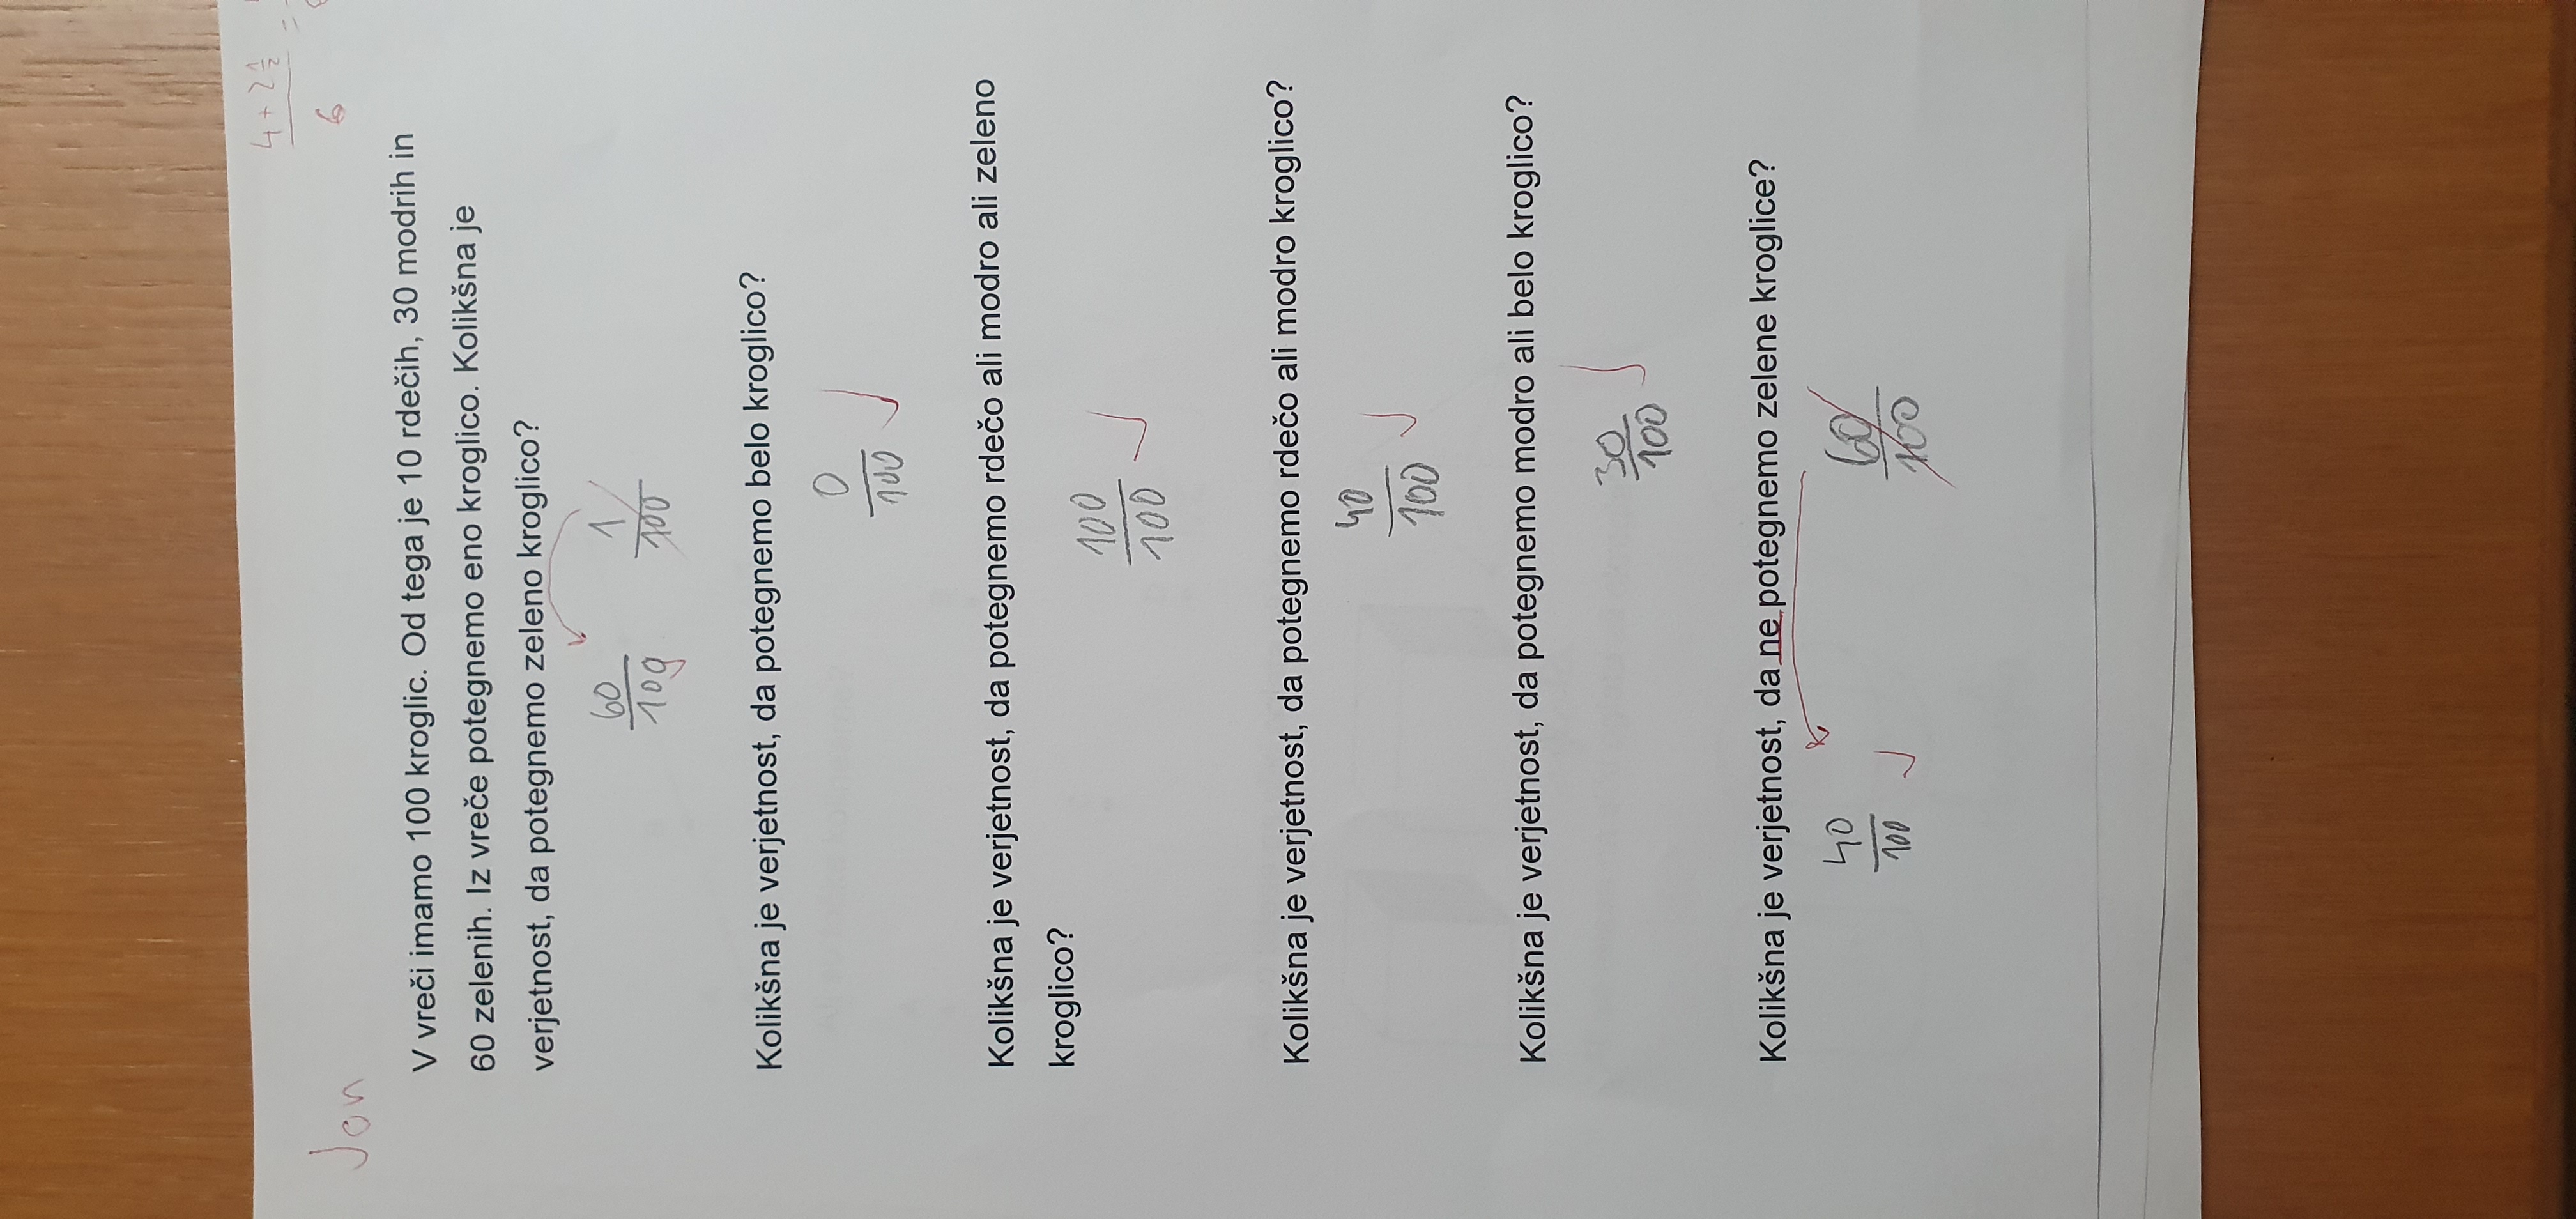 4 + 2 1/2
=
6
Jon
V vreči imamo 100 kroglic. Od tega je 10 rdečih, 30 modrih in
60 zelenih. Iz vreče potegnemo eno kroglico. Kolikšna je
verjetnost, da potegnemo zeleno kroglico?
60 1
100 100
Kolikšna je verjetnost, da potegnemo belo kroglico?
0
100
Kolikšna je verjetnost, da potegnemo rdečo ali modro ali zeleno
kroglico?
100
100
Kolikšna je verjetnost, da potegnemo rdečo ali modro kroglico?
40
100
Kolikšna je verjetnost, da potegnemo modro ali belo kroglico?
30
100
Kolikšna je verjetnost, da ne potegnemo zelene kroglice?
40 60
100 100